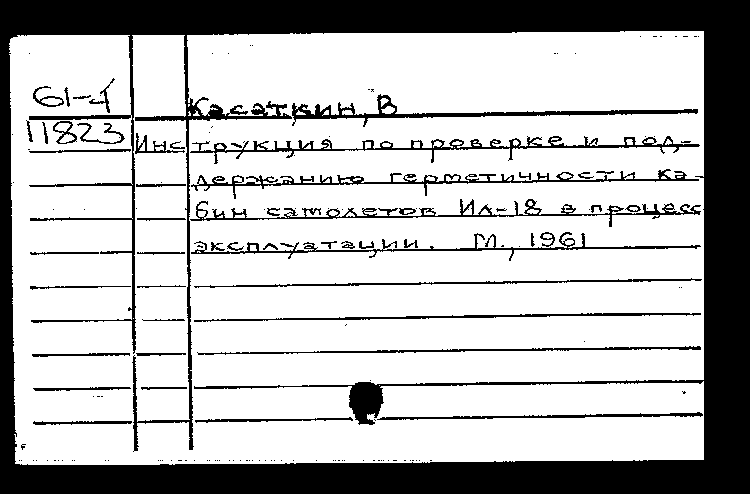 61-4
Касаткин, В
11823
Инструкция по проверке и под-
держанию герметичности ка-
бин самолетов Ил-18 в процесс
эксплуатации. М., 1961